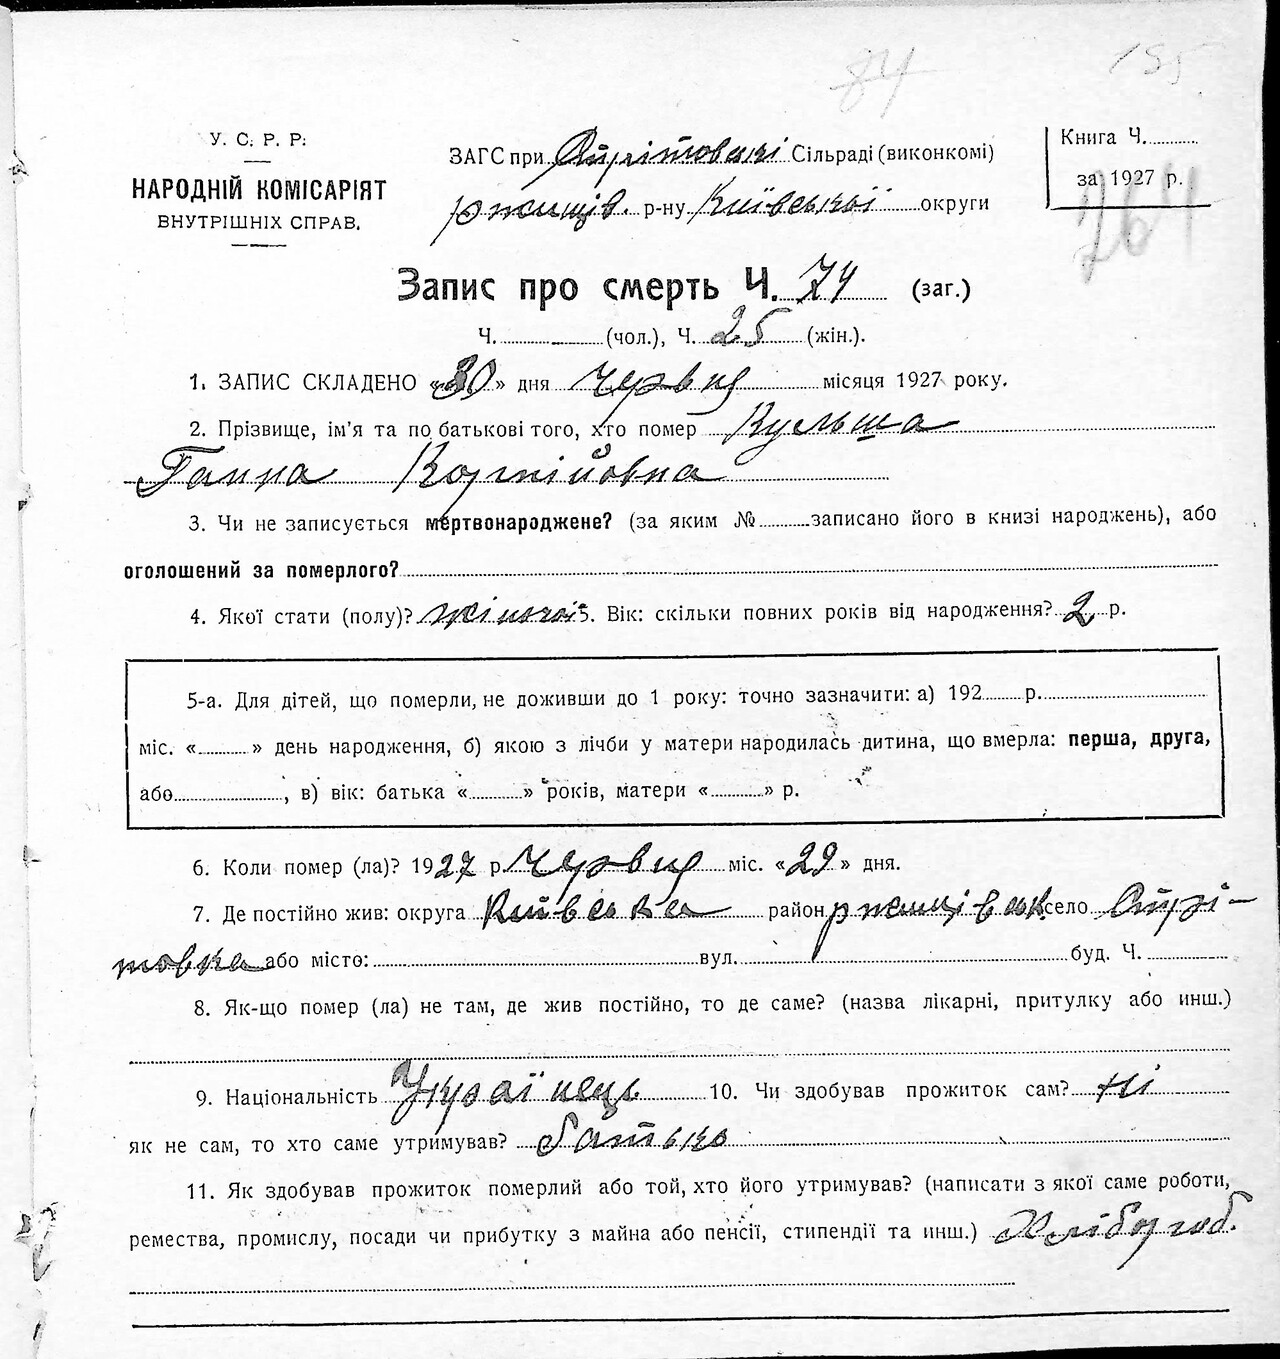 84 155
У. С. Р. Р.
НАРОДНІЙ КОМІСАРІЯТ
ВНУТРІШНІХ СПРАВ.
ЗАГС при Стрітовскі Сільраді (виконкомі)
ржищів. р-ну Київської округи
Книга Ч.
за 1927 р.
264
Запис про смерть Ч. 74 (заг.)
Ч. (чол.), Ч. 25 (жін.).
1. ЗАПИС СКЛАДЕНО «30» дня Червця місяця 1927 року.
2. Прізвище, ім'я та по батькові того, хто помер Кульша
Ганна Корнійовна
3. Чи не записується мертвонароджене? (за яким № записано його в книзі народжень), або
оголошений за померлого?
4. Якої стати (полу)? жіночої 5. Вік: скільки повних років від народження? 2 р.
5-а. Для дітей, що померли, не доживши до 1 року: точно зазначити: а) 192 р.
міс. « » день народження, б) якою з лічби у матери народилась дитина, що вмерла: перша, друга,
або , в) вік: батька « » років, матери « » р.
6. Коли помер (ла)? 1927 р. Червця міс. «29» дня.
7. Де постійно жив: округа Київська район ржищівськ село Стрі-
товка або місто: вул. буд. Ч.
8. Як-що помер (ла) не там, де жив постійно, то де саме? (назва лікарні, притулку або инш.)
9. Національність Українець 10. Чи здобував прожиток сам? Ні
як не сам, то хто саме утримував? батько
11. Як здобував прожиток померлий або той, хто його утримував? (написати з якої саме роботи,
ремества, промислу, посади чи прибутку з майна або пенсії, стипендії та инш.) Хлібороб.